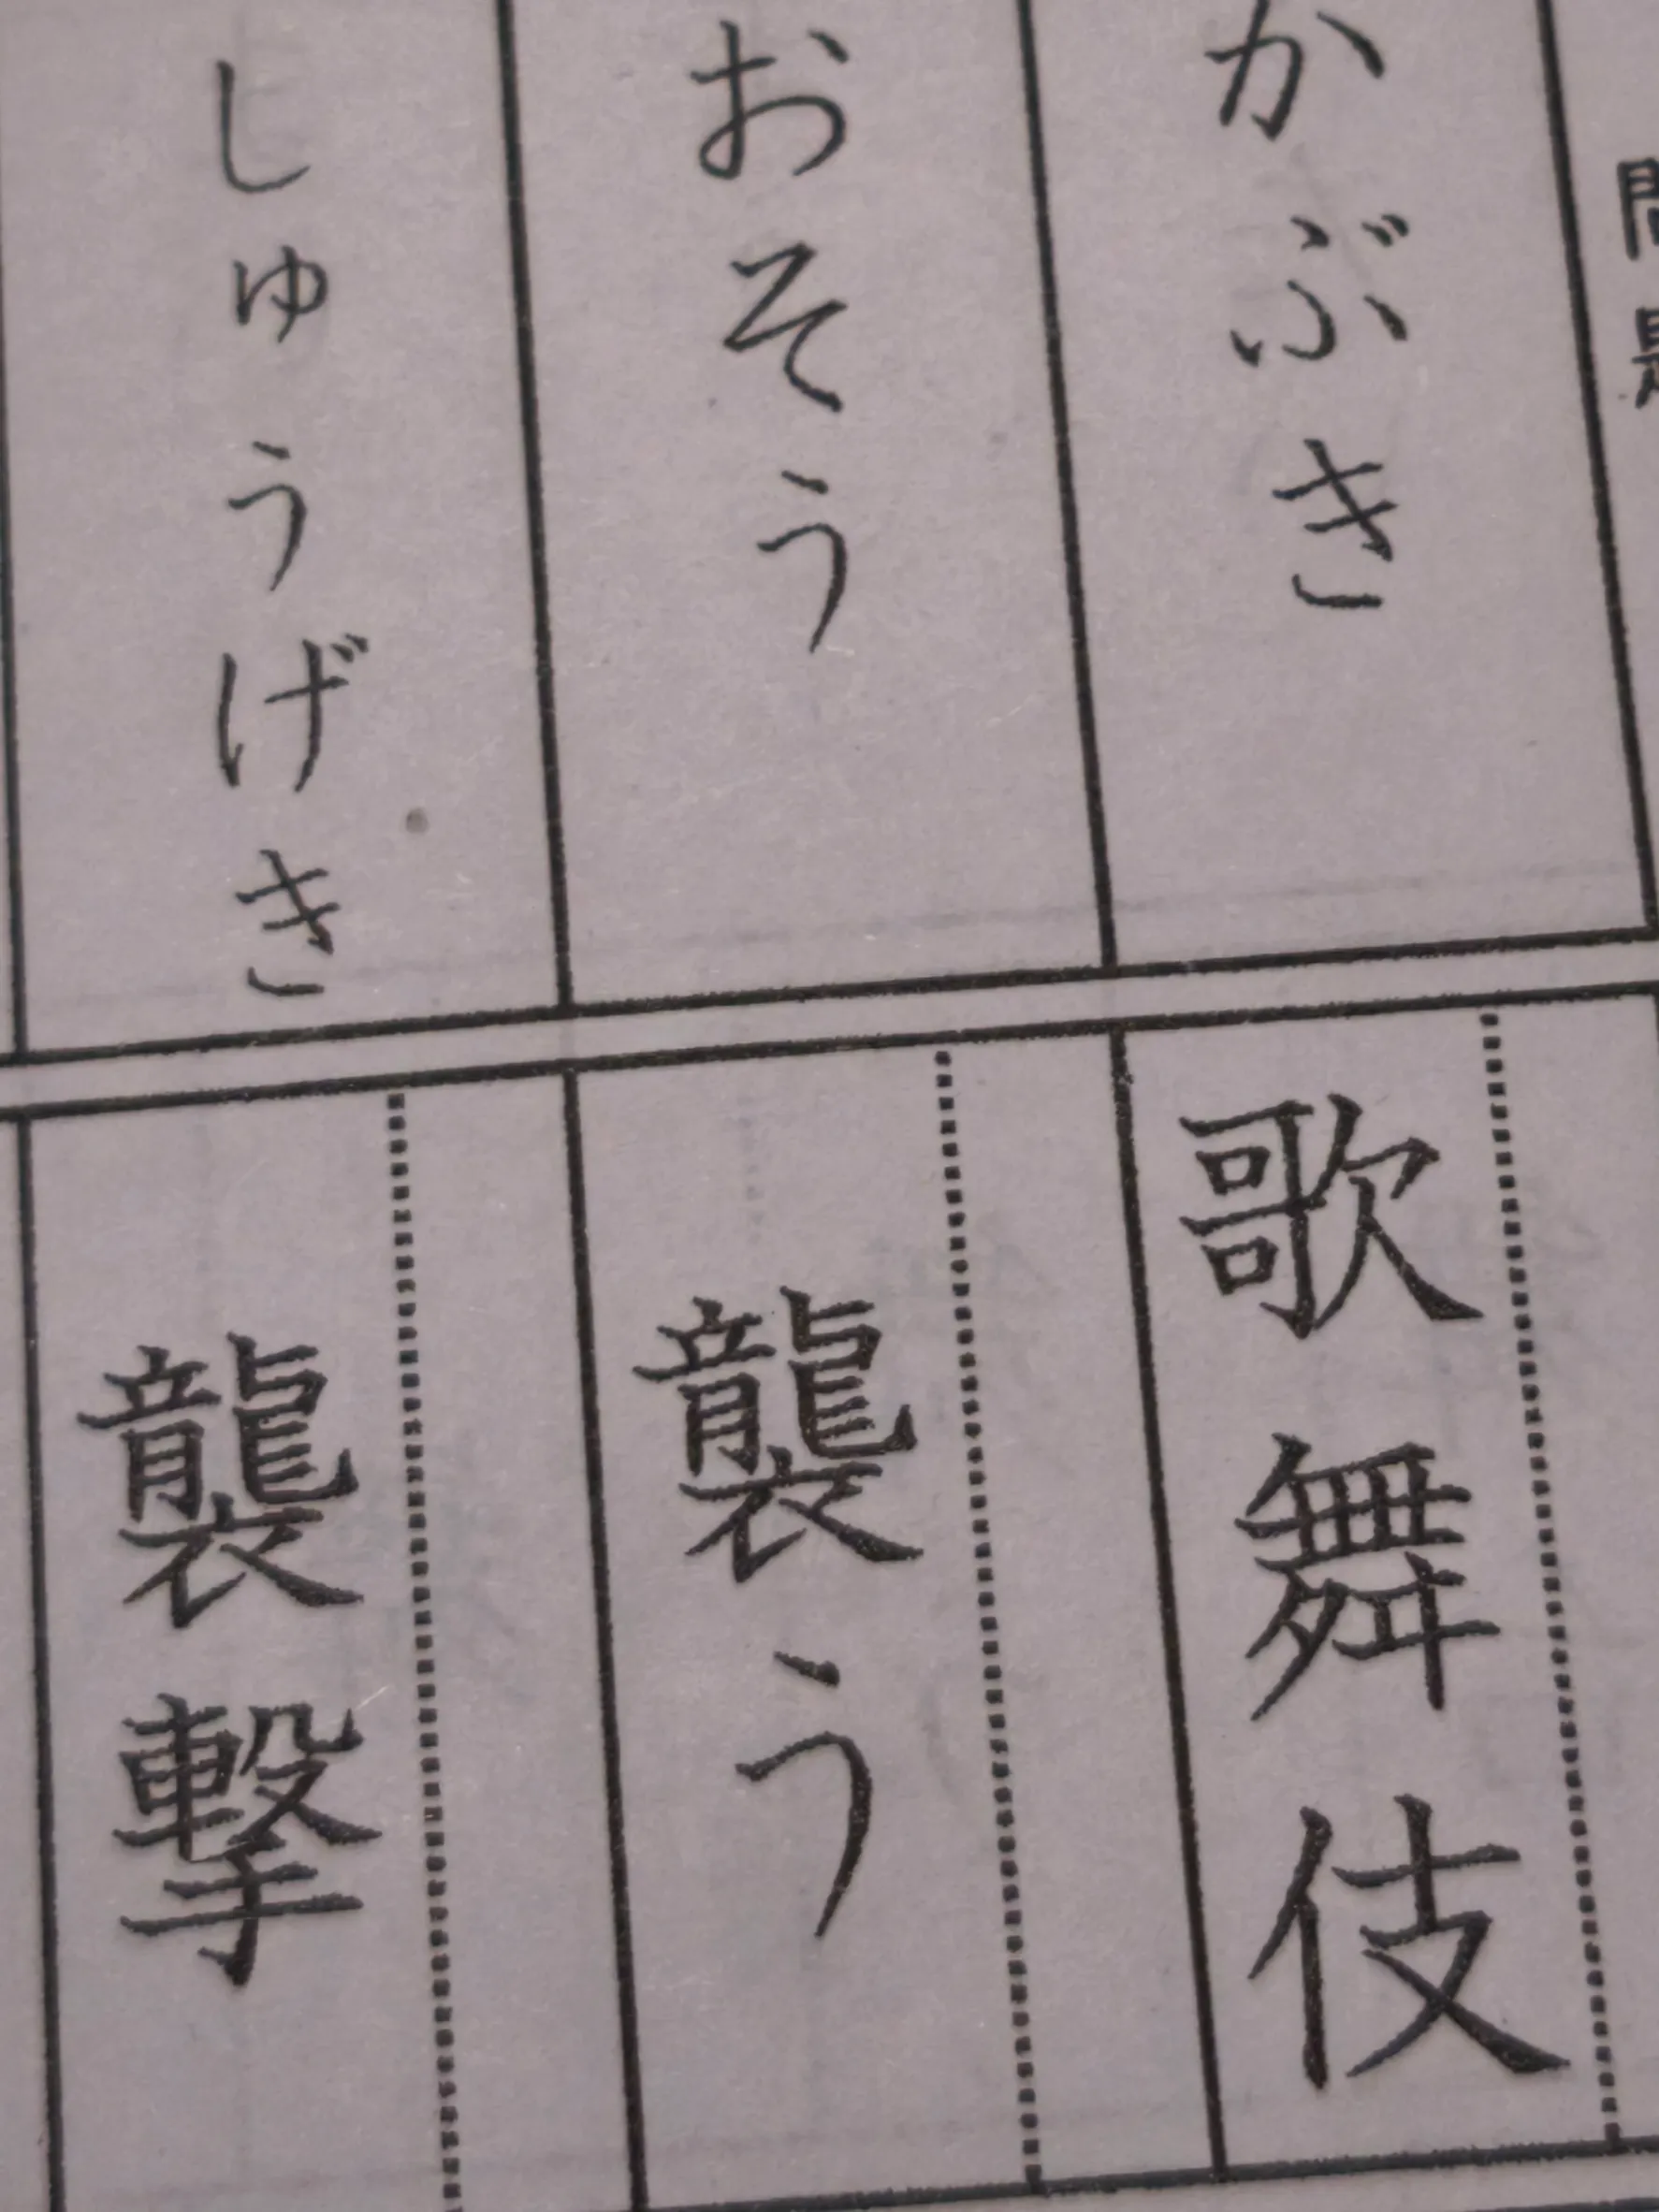 問題
かぶき
おそう
しゅうげき
歌舞伎
襲う
襲撃